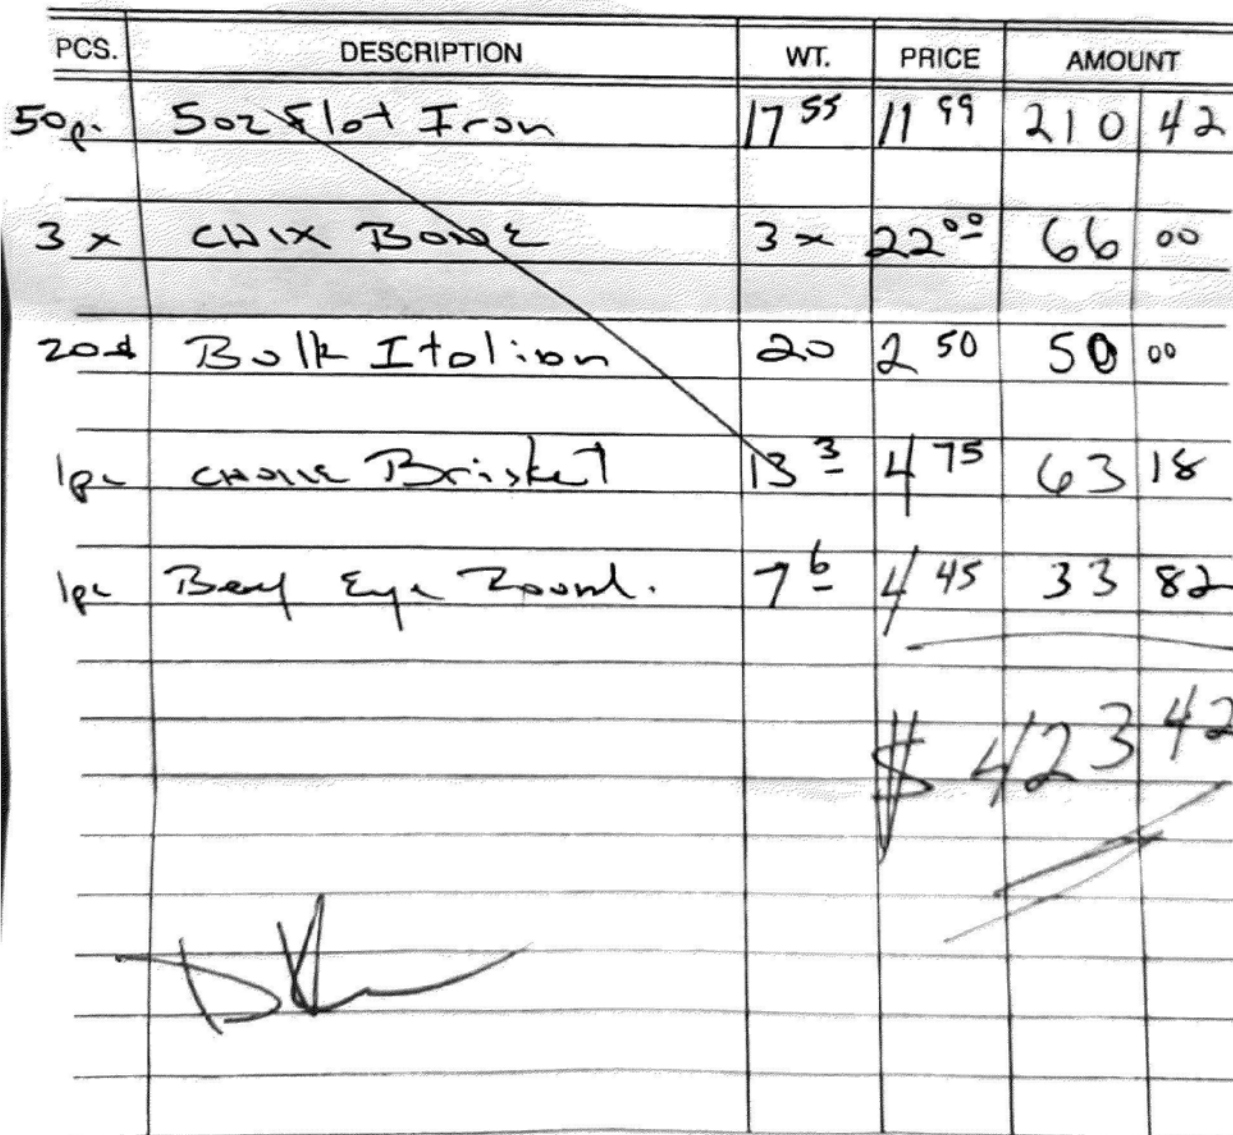 PCS. DESCRIPTION WT. PRICE AMOUNT
50p. 5oz Flat Iron 17 55 11 99 210 42
3 x CHIX BONE 3 x 22 00 66 00
20# Bulk Italian 20 2 50 50 00
1pc CHOICE Brisket 13 3 4 75 63 18
1pc Beef Eye Round. 7 6 4 45 33 82
$ 423 42